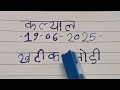 कल्याण
-19-06-2025-
खटीक जोडी